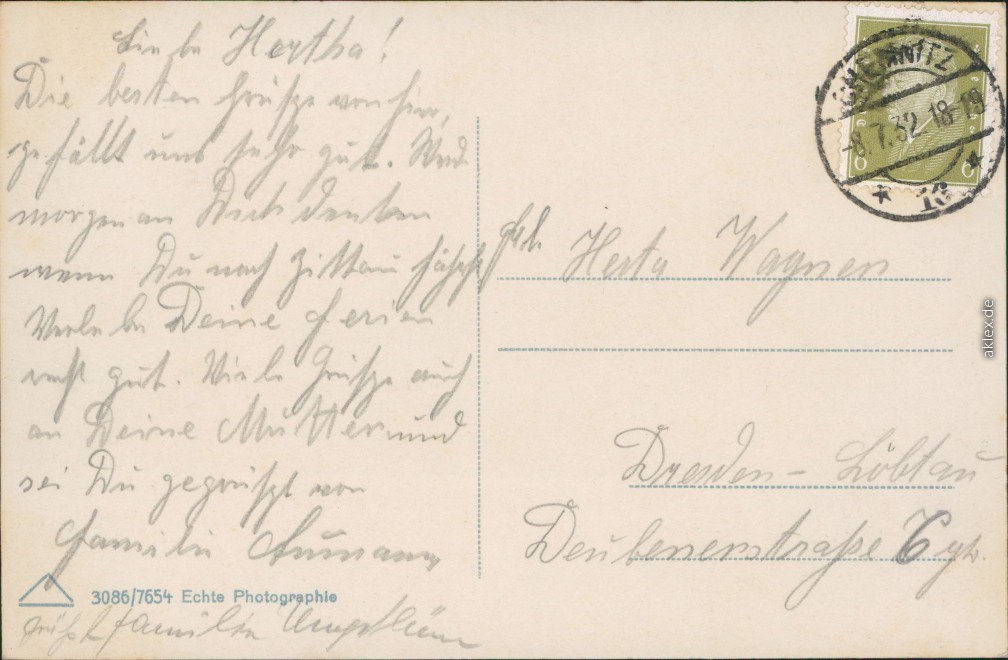 Liebe Hertha!
Die besten Grüsze von hier,
gefällt uns sehr gut. Werd
morgen an Dich denken
wenn Du nach Zittau fährst
Verlebe Deine Ferien
recht gut. Viele Grüsze auch
an Deine Mutter und
sei Du gegrüszt von
Familie Aumann
3086/7654 Echte Photographie
grüßt Familie
CHEMNITZ
-8.7.32. 18-19
* 16 *
8 8
Frl. Herta Wagner
Dresden - Löbtau
Deubenerstraße 6
aklex.de